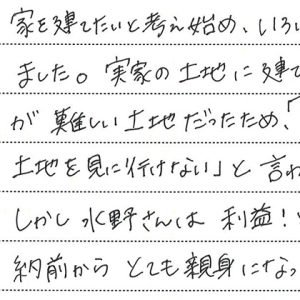 家を建てたいと考え始め、いろい
ました。実家の土地に建て
が難しい土地だったため、「
土地を見に行けない」と言わ
しかし水野さんは利益!
納前から とても親身になっ